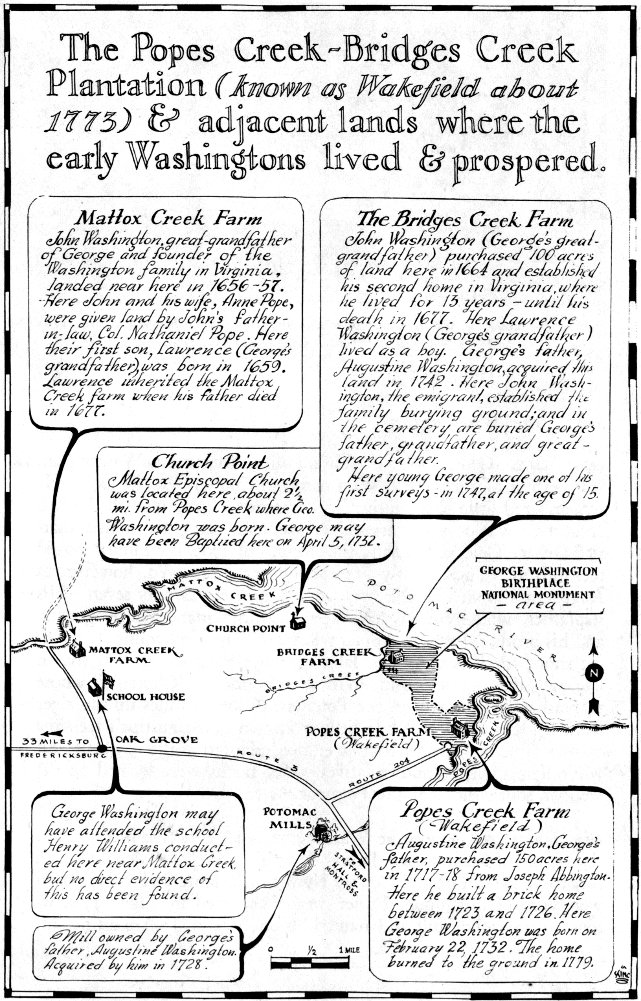 The Popes Creek-Bridges Creek
Plantation (known as Wakefield about
1773) & adjacent lands where the
early Washingtons lived & prospered.
Mattox Creek Farm
John Washington, great-grandfather
of George and founder of the
Washington family in Virginia,
landed near here in 1656-57.
Here John and his wife, Anne Pope,
were given land by John's father-
in-law, Col. Nathaniel Pope. Here
their first son, Lawrence (George's
grandfather), was born in 1659.
Lawrence inherited the Mattox
Creek farm when his father died
in 1677.
The Bridges Creek Farm
John Washington (George's great-
grandfather) purchased 100 acres
of land here in 1664 and established
his second home in Virginia, where
he lived for 13 years - until his
death in 1677. Here Lawrence
Washington (George's grandfather)
lived as a boy. George's father,
Augustine Washington, acquired this
land in 1742. Here John Wash-
ington, the emigrant, established the
family burying ground; and in
the cemetery are buried George's
father, grandfather, and great-
grandfather.
Here young George made one of his
first surveys - in 1747, at the age of 15.
Church Point
Mattox Episcopal Church
was located here, about 2½
mi. from Popes Creek where Geo.
Washington was born. George may
have been Baptized here on April 5, 1732.
GEORGE WASHINGTON
BIRTHPLACE
NATIONAL MONUMENT
- area -
MATTOX CREEK
POTOMAC RIVER
CHURCH POINT
MATTOX CREEK
FARM
BRIDGES CREEK
FARM
BRIDGES CREEK
N
SCHOOL HOUSE
POPES CREEK FARM
(Wakefield)
POPES CREEK
33 MILES TO
FREDERICKSBURG
OAK GROVE
ROUTE 3
ROUTE 204
POTOMAC
MILLS
TO
STRATFORD
HALL &
MONTROSS
George Washington may
have attended the school
Henry Williams conduct-
ed here near Mattox Creek,
but no direct evidence of
this has been found.
Popes Creek Farm
(Wakefield)
Augustine Washington, George's
father, purchased 150 acres here
in 1717-18 from Joseph Abbington.
Here he built a brick home
between 1723 and 1726. Here
George Washington was born on
February 22, 1732. The home
burned to the ground in 1779.
Mill owned by George's
father, Augustine Washington.
Acquired by him in 1728.
0 ½ 1 MILE